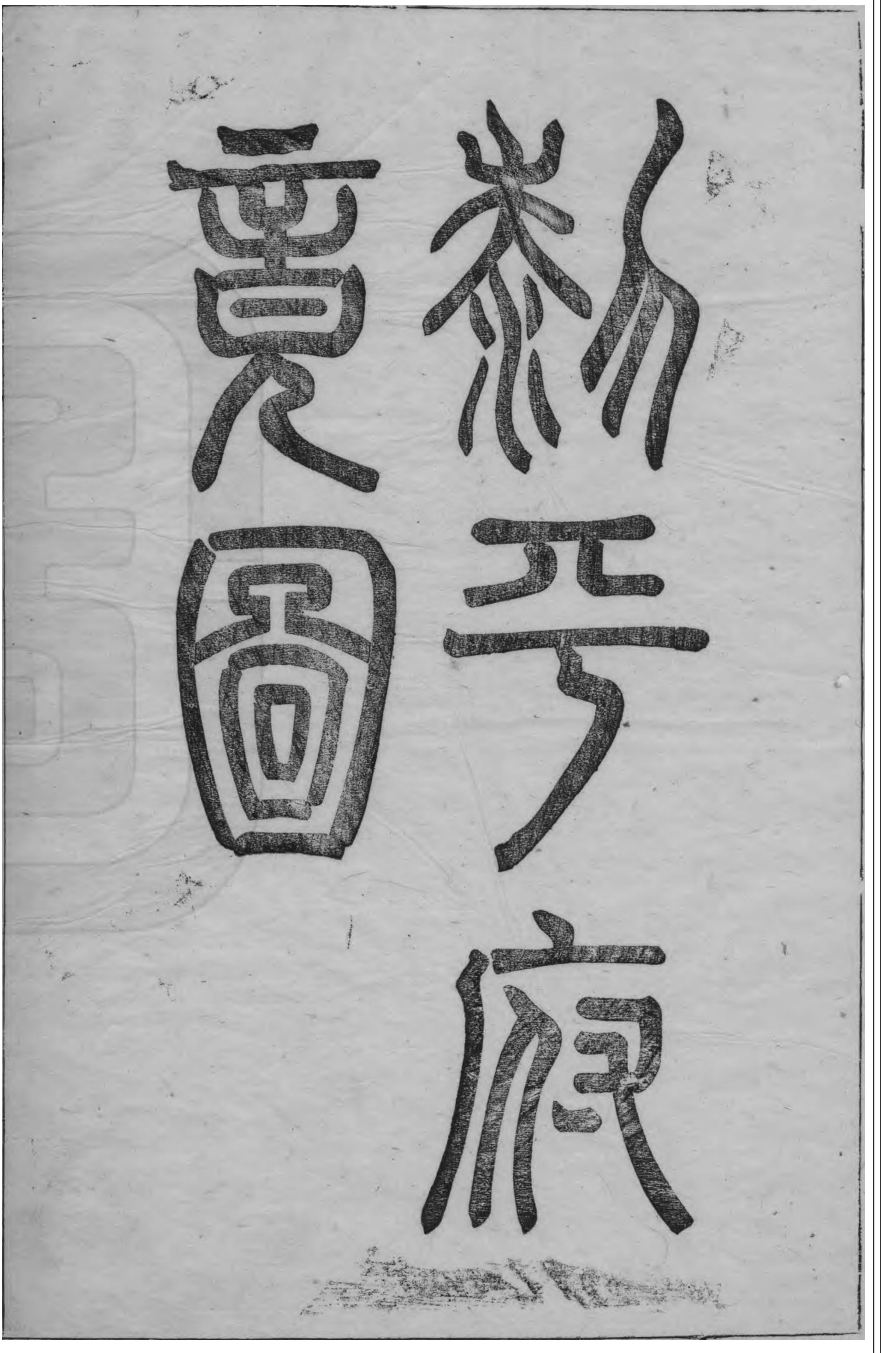 黎平府
竟圖